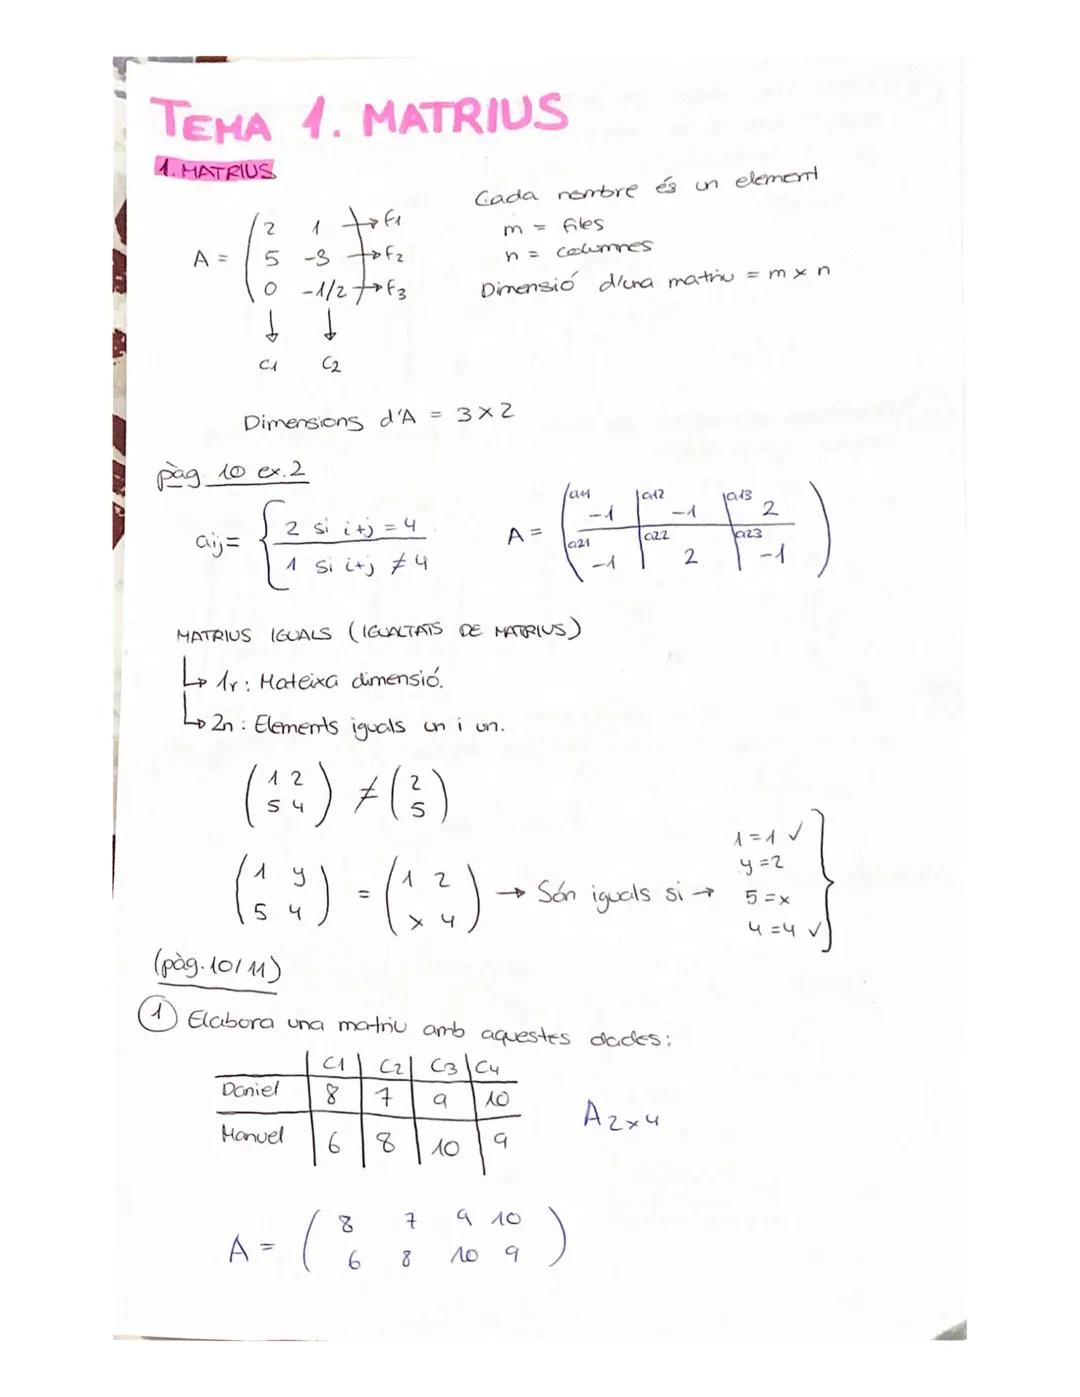 TEMA 1. MATRIUS
1. MATRIUS
Cada nombre és un element
m = files
n = columnes
Dimensió d'una matriu = m x n
A = ( 2 1 ) → F1
5 -3 → F2
0 -1/2 → F3
↓ ↓
C1 C2
Dimensions d'A = 3x2
pàg. 10 ex.2
aij = { 2 si i+j = 4
1 si i+j ≠ 4
A = ( a11 -1 | a12 -1 | a13 2
a21 -1 | a22 2 | a23 -1 )
MATRIUS IGUALS (IGUALTATS DE MATRIUS)
↳ 1r: Mateixa dimensió.
↳ 2n: Elements iguals un i un.
( 1 2 ) ≠ ( 2 )
5 4 5
( 1 y ) = ( 1 2 ) → Són iguals si →
5 4 x 4
1=1 ✓
y=2
5=x
4=4 ✓
(pàg. 10/11)
1 Elabora una matriu amb aquestes dades:
C1 C2 C3 C4
Daniel 8 7 9 10
Manuel 6 8 10 9
A2x4
A = ( 8 7 9 10
6 8 10 9 )